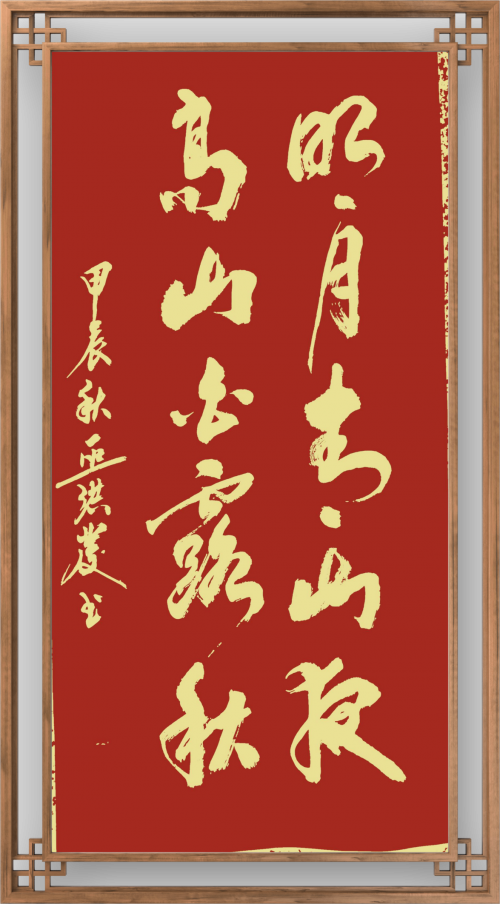 明月青山夜
高山白露秋
甲辰秋洪慶书